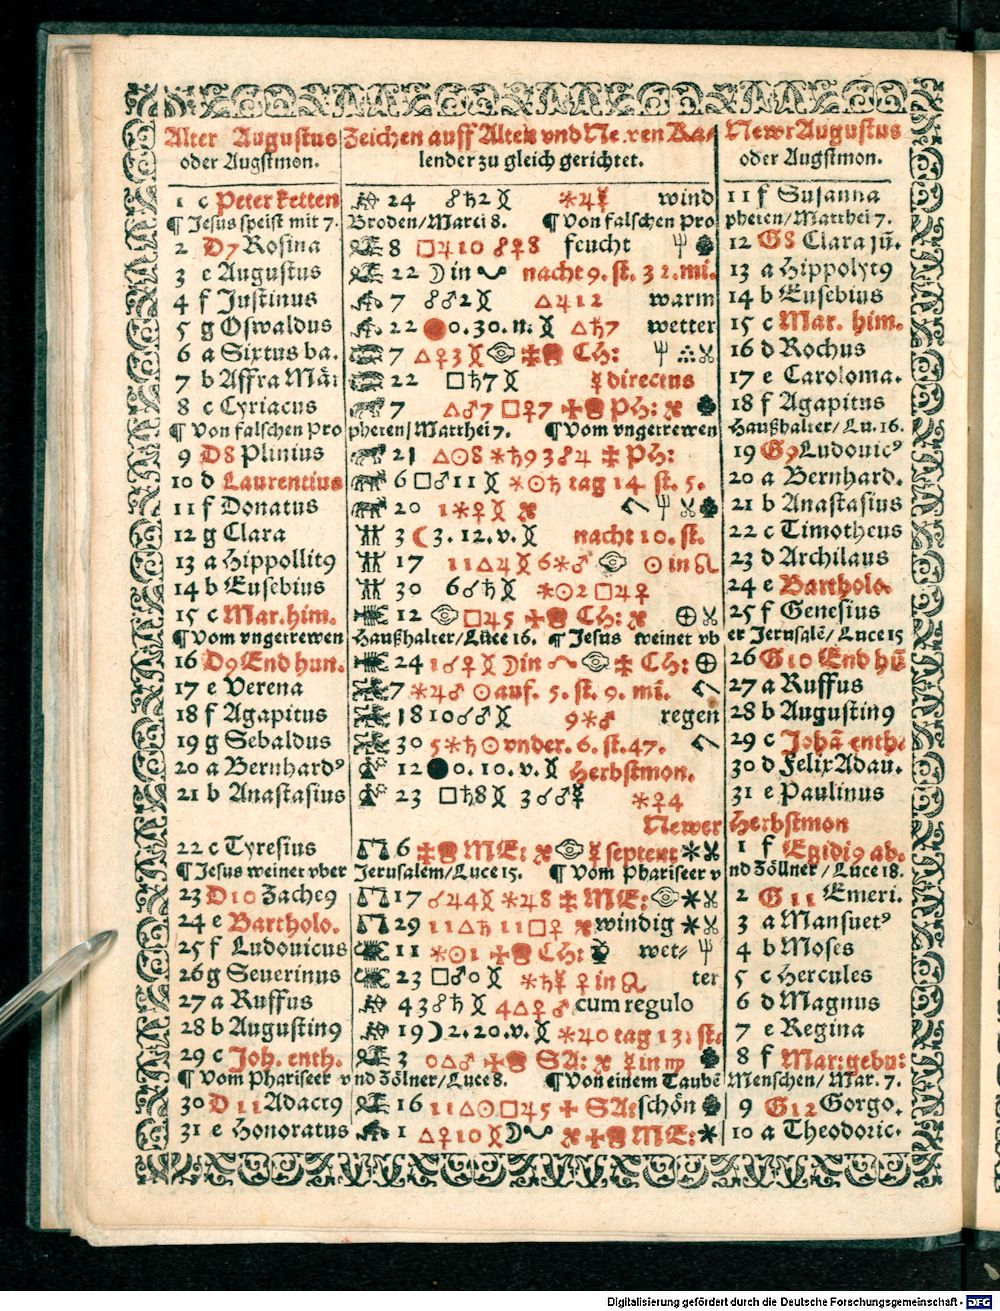 Alter Augustus Zeichen auff Alten vnd Newen Ka⸗ Newr Augustus
oder Augstmon. lender zu gleich gerichtet. oder Augstmon.
1 c Peter ketten ♐ 24 ☍♄2 ⚹♃☿ wind 11 f Susanna
¶ Jesus speist mit 7. Broden/Marci 8. ¶ Von falschen Pro pheten/Matthei 7.
2 D7 Rosina ♑ 8 □♃10 ☍♀8 feucht 12 G8 Clara jü.
3 e Augustus ♑ 22 ☽ in nacht 9. st. 32. mi. 13 a Hippolyt9
4 f Justinus ♒ 7 ☍♂2 △♃12 warm 14 b Eusebius
5 g Oswaldus ♒ 22 ● 0. 30. n. △♄7 wetter 15 c Mar. him.
6 a Sixtus ba. ♓ 7 △♀3 CH: 16 d Rochus
7 b Affra Mär: ♓ 22 □♄7 ☿ directus 17 e Caroloma.
8 c Cyriacus ♈ 7 △♂7 □♀7 PH: 18 f Agapitus
¶ Von falschen Pro pheten/Matthei 7. ¶ Vom vngetrewen Haußhalter/Lu. 16.
9 D8 Plinius ♈ 21 △☉8 ⚹♄9 3☍♃ PH: 19 G9 Ludouic9
10 d Laurentius ♉ 6 □♂11 ⚹☉♄ tag 14 st. 5. 20 a Bernhard.
11 f Donatus ♉ 20 1⚹♀ 21 b Anastasius
12 g Clara ♊ 3 ☾ 3. 12. v. nacht 10. st. 22 c Timotheus
13 a Hippollit9 ♊ 17 11△♃ 6⚹♂ ☉ in ♌ 23 d Archilaus
14 b Eusebius ♊ 30 6☌♄ ⚹☉2 □♃♀ 24 e Bartholo.
15 c Mar. him. ♋ 12 □♃5 CH: 25 f Genesius
¶ Vom vngetrewen Haußhalter/Luce 16. ¶ Jesus weinet vb er Jerusalē/Luce 15
16 D9 End hun. ♋ 24 1☌♀ ☽ in CH: 26 G10 End hū
17 e Verena ♌ 7 ⚹♃♂ ☉ auf. 5. st. 9. mi. 27 a Ruffus
18 f Agapitus ♌ 18 10☌♂ 9⚹♂ regen 28 b Augustin9
19 g Sebaldus ♌ 30 5⚹♄ ☉ vnder. 6. st. 47. 29 c Johā enth.
20 a Bernhard9 ♍ 12 ● 0. 10. v. Herbstmon. 30 d Felix Adau.
21 b Anastasius ♍ 23 □♄8 3☌☿ ⚹♀4 31 e Paulinus
Newer Herbstmon
22 c Tyresius ♎ 6 ME: ☿ septent 1 f Egidi9 ab.
¶ Jesus weinet vber Jerusalem/Luce 15. ¶ Vom Phariseer v nd Zöllner/Luce 18.
23 D10 Zache9 ♎ 17 ☌♃4 ⚹♃8 ME: 2 G11 Emeri.
24 e Bartholo. ♎ 29 11△♄ 11□♀ windig 3 a Mansuet9
25 f Ludouicus ♏ 11 ⚹☉1 CH: wet⸗ 4 b Moses
26 g Seuerinus ♏ 23 □♂0 ⚹♄☿ ♀ in ♌ ter 5 c Hercules
27 a Ruffus ♐ 4 3☍♄ 4△♀ ♂ cum regulo 6 d Magnus
28 b Augustin9 ♐ 19 ☽ 2. 20. v. ⚹♃0 tag 13: st. 7 e Regina
29 c Joh. enth. ♑ 3 0△♂ SA: ☿ in ♍ 8 f Mar: gebu:
¶ Vom Phariseer v nd Zölner/Luce 8. ¶ Von einem Taubē Menschen/Mar. 7.
30 D11 Adact9 ♑ 16 11△☉ □♃5 SA: schön 9 G12 Gorgo.
31 e Honoratus ♒ 1 △♀10 ☽ ME: 10 a Theodoric.
Digitalisierung gefördert durch die Deutsche Forschungsgemeinschaft - DFG